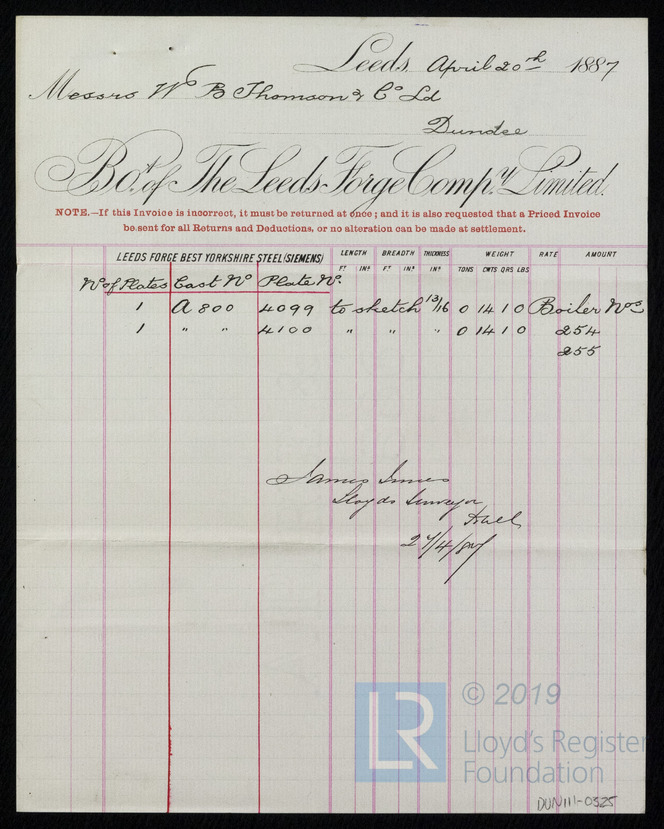 Leeds, April 20th 1887
Messrs Wm B Thomson & Co Ld
Dundee
Bot. of The Leeds Forge Compy. Limited.
NOTE.—If this Invoice is incorrect, it must be returned at once; and it is also requested that a Priced Invoice
be sent for all Returns and Deductions, or no alteration can be made at settlement.
LEEDS FORGE BEST YORKSHIRE STEEL (SIEMENS) LENGTH BREADTH THICKNESS WEIGHT RATE AMOUNT
FT. INS. FT. INS. INS. TONS CWTS QRS LBS
No of Plates Cast No Plate No.
1 A 800 4099 to sketch 13/16 0 14 1 0 Boiler Nos
1 " " 4100 " " " 0 14 1 0 254
255
James Innes
Lloyds Surveyor
Hull
27/4/87
LR
© 2019
Lloyd's Register
Foundation
DUN111-0325